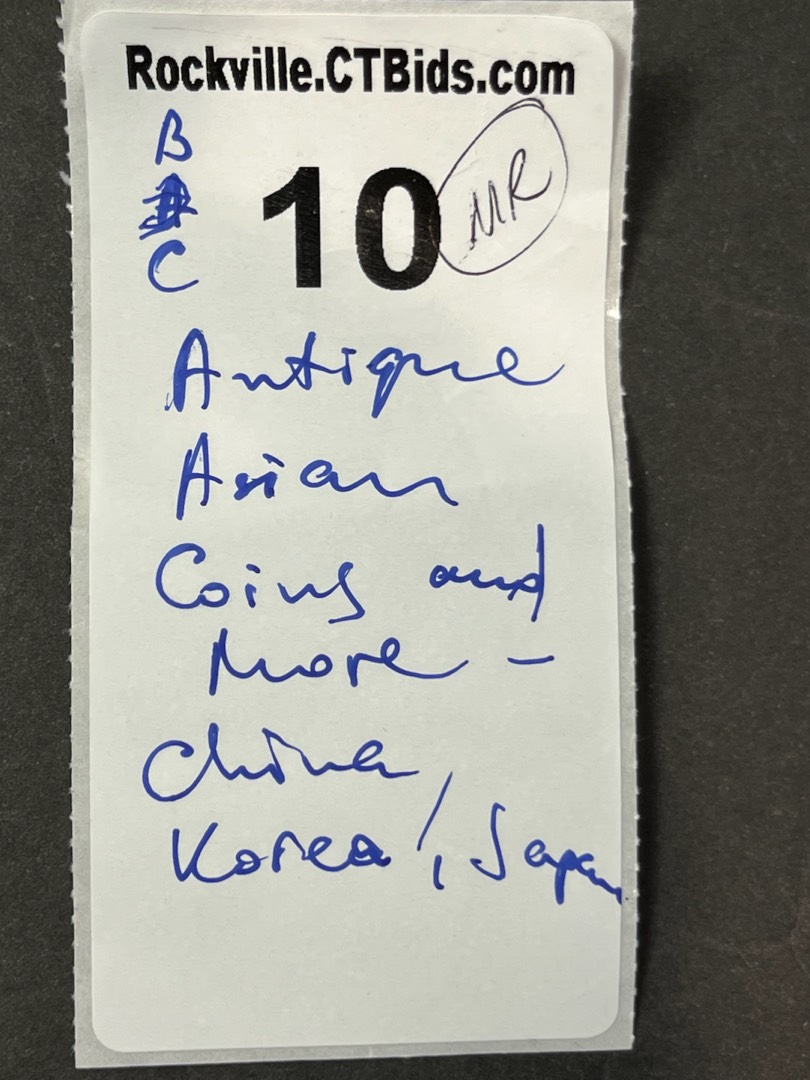 Rockville.CTBids.com
B
C
10
MR
Antique
Asian
Coins and
More -
China,
Korea, Japan